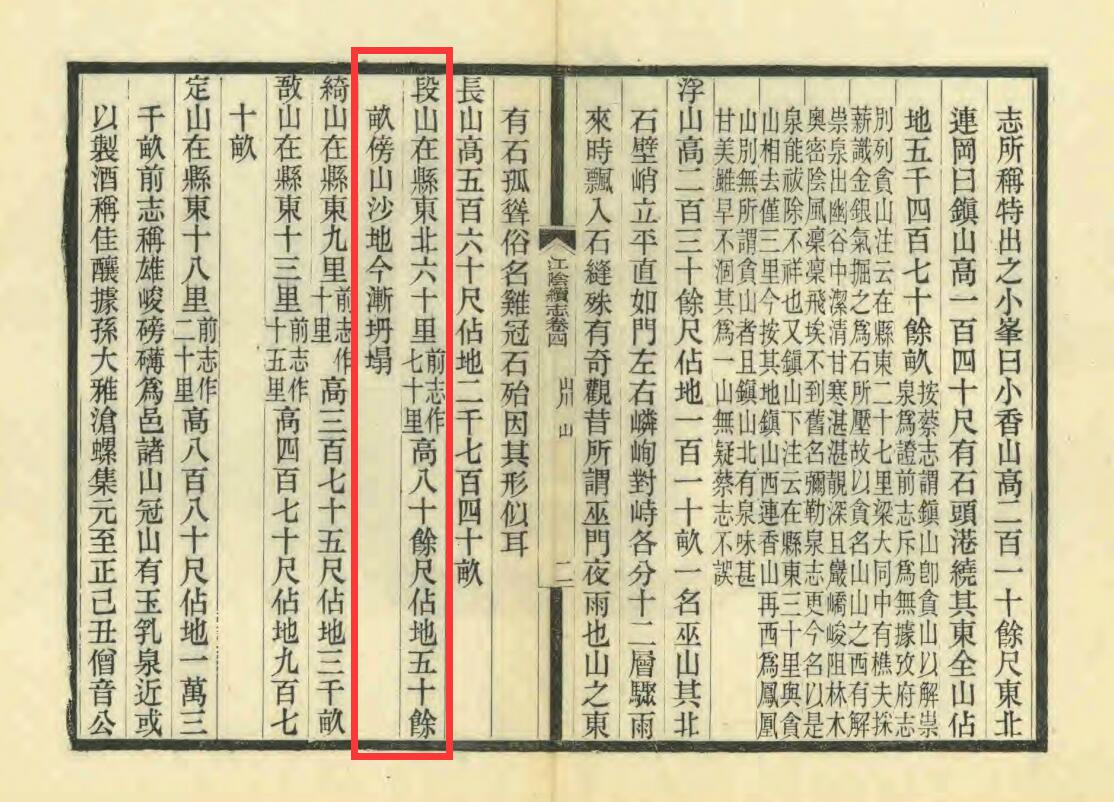 志所稱特出之小峯曰小香山高二百一十餘尺東北
連岡曰鎮山高一百四十尺有石頭港繞其東全山佔
地五千四百七十餘畝按蔡志謂鎮山卽貪山以解崇
泉爲證前志斥爲無據攷府志
別列貪山注云在縣東二十七里梁大同中有樵夫採
薪識金銀氣掘之爲石所壓故以貪名山山之西有解
崇泉出幽谷中潔清甘寒湛湛靚深且巖嶠峻阻林木
奧密陰風凜凜飛埃不到舊名彌勒泉志更今名以是
泉能祓除不祥也又鎮山下注云在縣東三十里與貪
山相去僅三里今按其地鎮山西連香山再西爲鳳凰
山別無所謂貪山者且鎮山北有泉味甚
甘美雖旱不涸其爲一山無疑蔡志不誤
浮山高二百三十餘尺佔地一百一十畝一名巫山其北
石壁峭立平直如門左右嶙峋對峙各分十二層驟雨
來時飄入石縫殊有奇觀昔所謂巫門夜雨也山之東
江陰續志卷四
山川 山
二
有石孤聳俗名雞冠石殆因其形似耳
長山高五百六十尺佔地二千七百四十畝
段山在縣東北六十里前志作七十里高八十餘尺佔地五十餘
畝傍山沙地今漸坍塌
綺山在縣東九里前志作十里高三百七十五尺佔地三千畝
敔山在縣東十三里前志作十五里高四百七十尺佔地九百七
十畝
定山在縣東十八里前志作二十里高八百八十尺佔地一萬三
千畝前志稱雄峻磅礴爲邑諸山冠山有玉乳泉近或
以製酒稱佳釀據孫大雅滄螺集元至正己丑僧音公